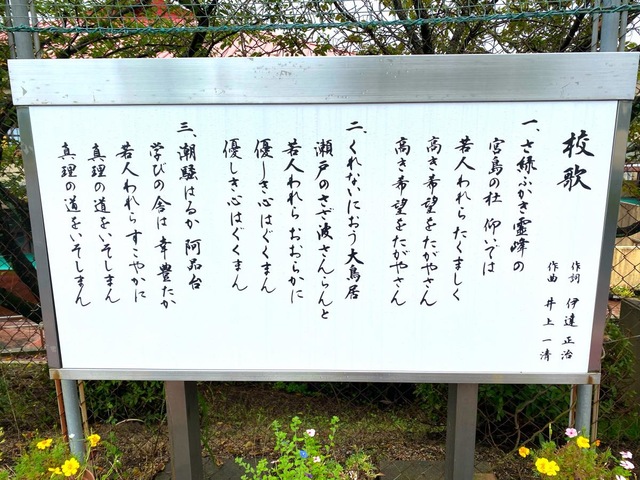 校歌
作詞 伊達 正治
作曲 井上 一清
一、さ緑ふかき霊峰の
宮島の杜 仰いでは
若人われら たくましく
高き希望をたがやさん
高き希望をたがやさん
二、くれないにおう大鳥居
瀬戸のさざ波さんらんと
若人われら おおらかに
優しき心はぐくまん
優しき心はぐくまん
三、潮騒はるか 阿品台
学びの舎は 幸 豊たか
若人われら すこやかに
真理の道をいそしまん
真理の道をいそしまん